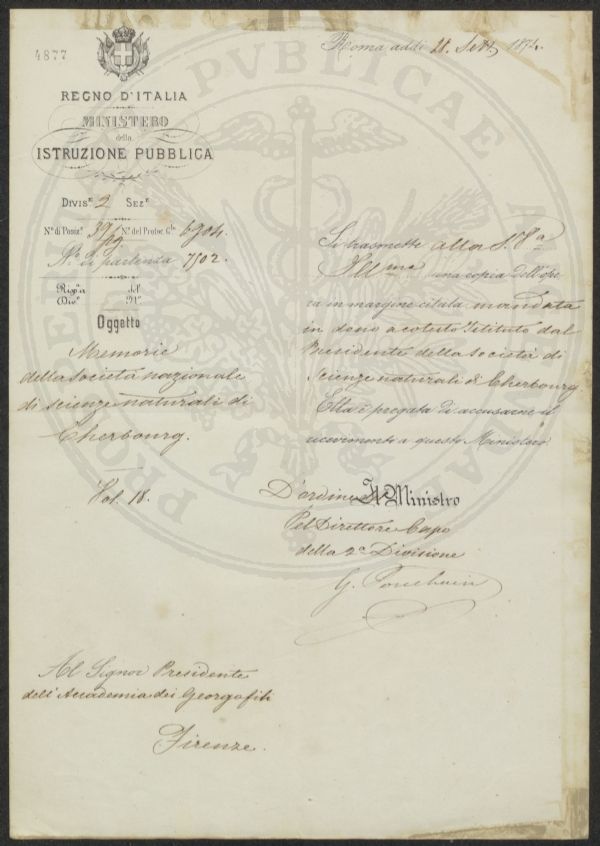 4877
Roma addi 28. Sett. 1874.
REGNO D'ITALIA
MINISTERO
della
ISTRUZIONE PUBBLICA
Divis.e 2 Sez.e
N.o di Posiz.e 39/12 N.o del Protoc. G.le 6904.
N.o di partenza 7502.
Risp.a del
Div.e N.o
Oggetto
Memorie
della società nazionale
di scienze naturali di
Cherbourg.
Vol. 18.
Si trasmette alla S. V.a
Ill.ma una copia dell'ope
ra in margine citata mandata
in dono a cotesto Istituto dal
Presidente della società di
Scienze naturali di Cherbourg
Ella è pregata di accusarne il
ricevimento a questo Ministero.
D'ordine Il Ministro
Pel Direttore Capo
della 2a Divisione
G.
Al Signor Presidente
dell'Accademia dei Georgofili
Firenze.